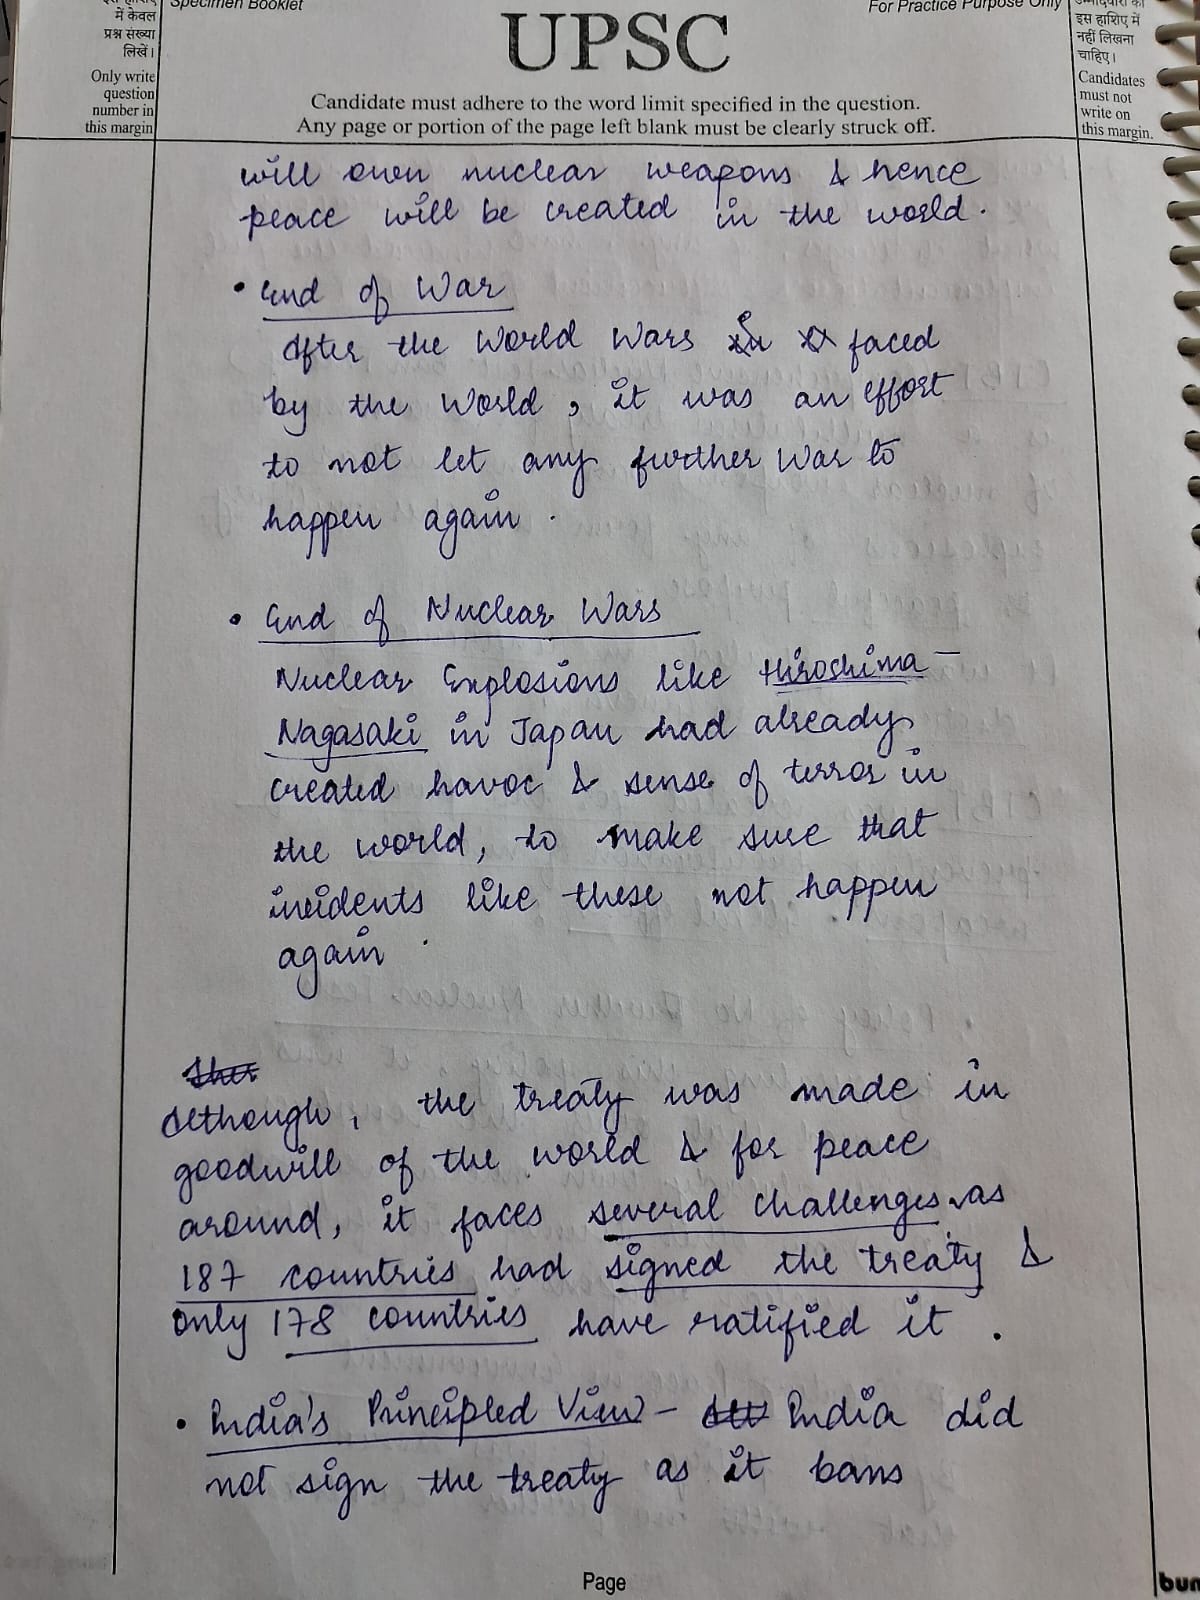 में केवल
प्रश्न संख्या
लिखें।
Only write
question
number in
this margin
Specimen Booklet
For Practice Purpose Only
UPSC
Candidate must adhere to the word limit specified in the question.
Any page or portion of the page left blank must be clearly struck off.
इस हाशिए में
नहीं लिखना
चाहिए।
Candidates
must not
write on
this margin.
will own nuclear weapons & hence
peace will be created in the world.
• End of War
After the World Wars faced
by the World, it was an effort
to not let any further War to
happen again.
• End of Nuclear Wars
Nuclear Explosions like Hiroshima-
Nagasaki in Japan had already
created havoc & sense of terror in
the world, to make sure that
incidents like these not happen
again.
Although, the treaty was made in
goodwill of the world & for peace
around, it faces several challenges as
187 countries had signed the treaty &
only 178 countries have ratified it.
• India's Principled View - India did
not sign the treaty as it bans
Page